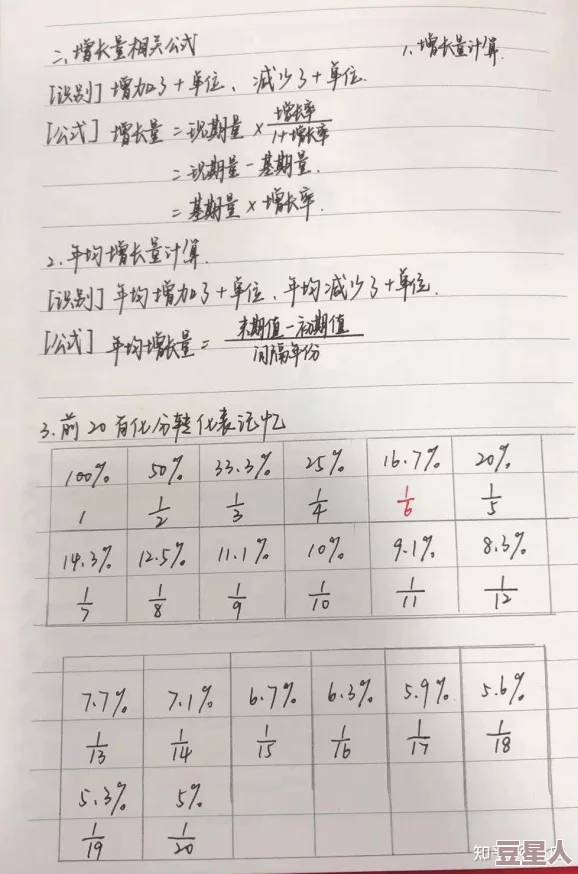 二、增长量相关公式
1、增长量计算.
[识别] 增加了+单位、减少了+单位.
[公式] 增长量 = 现期量 × 增长率/1+增长率
= 现期量 - 基期量.
= 基期量 × 增长率.
2、年均增长量计算.
[识别] 年均增加了+单位、年均减少了+单位.
[公式] 年均增长量 = 末期值-初期值/间隔年份
3、前20百化分转化表记忆
100% 50% 33.3% 25% 16.7% 20%
1 1/2 1/3 1/4 1/6 1/5
14.3% 12.5% 11.1% 10% 9.1% 8.3%
1/7 1/8 1/9 1/10 1/11 1/12
7.7% 7.1% 6.7% 6.3% 5.9% 5.6%
1/13 1/14 1/15 1/16 1/17 1/18
5.3% 5%
1/19 1/20
知乎
豆星人